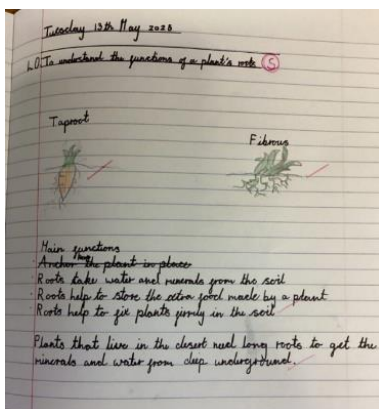 Tuesday 13th May 2025
L.O: To understand the functions of a plant's roots S
Taproot
Fibrous
Main functions
Anchor the plant in place
Roots take water and minerals from the soil
Roots help to store the extra food made by a plant
Roots help to fix plants firmly in the soil
Plants that live in the desert need long roots to get the
minerals and water from deep underground.